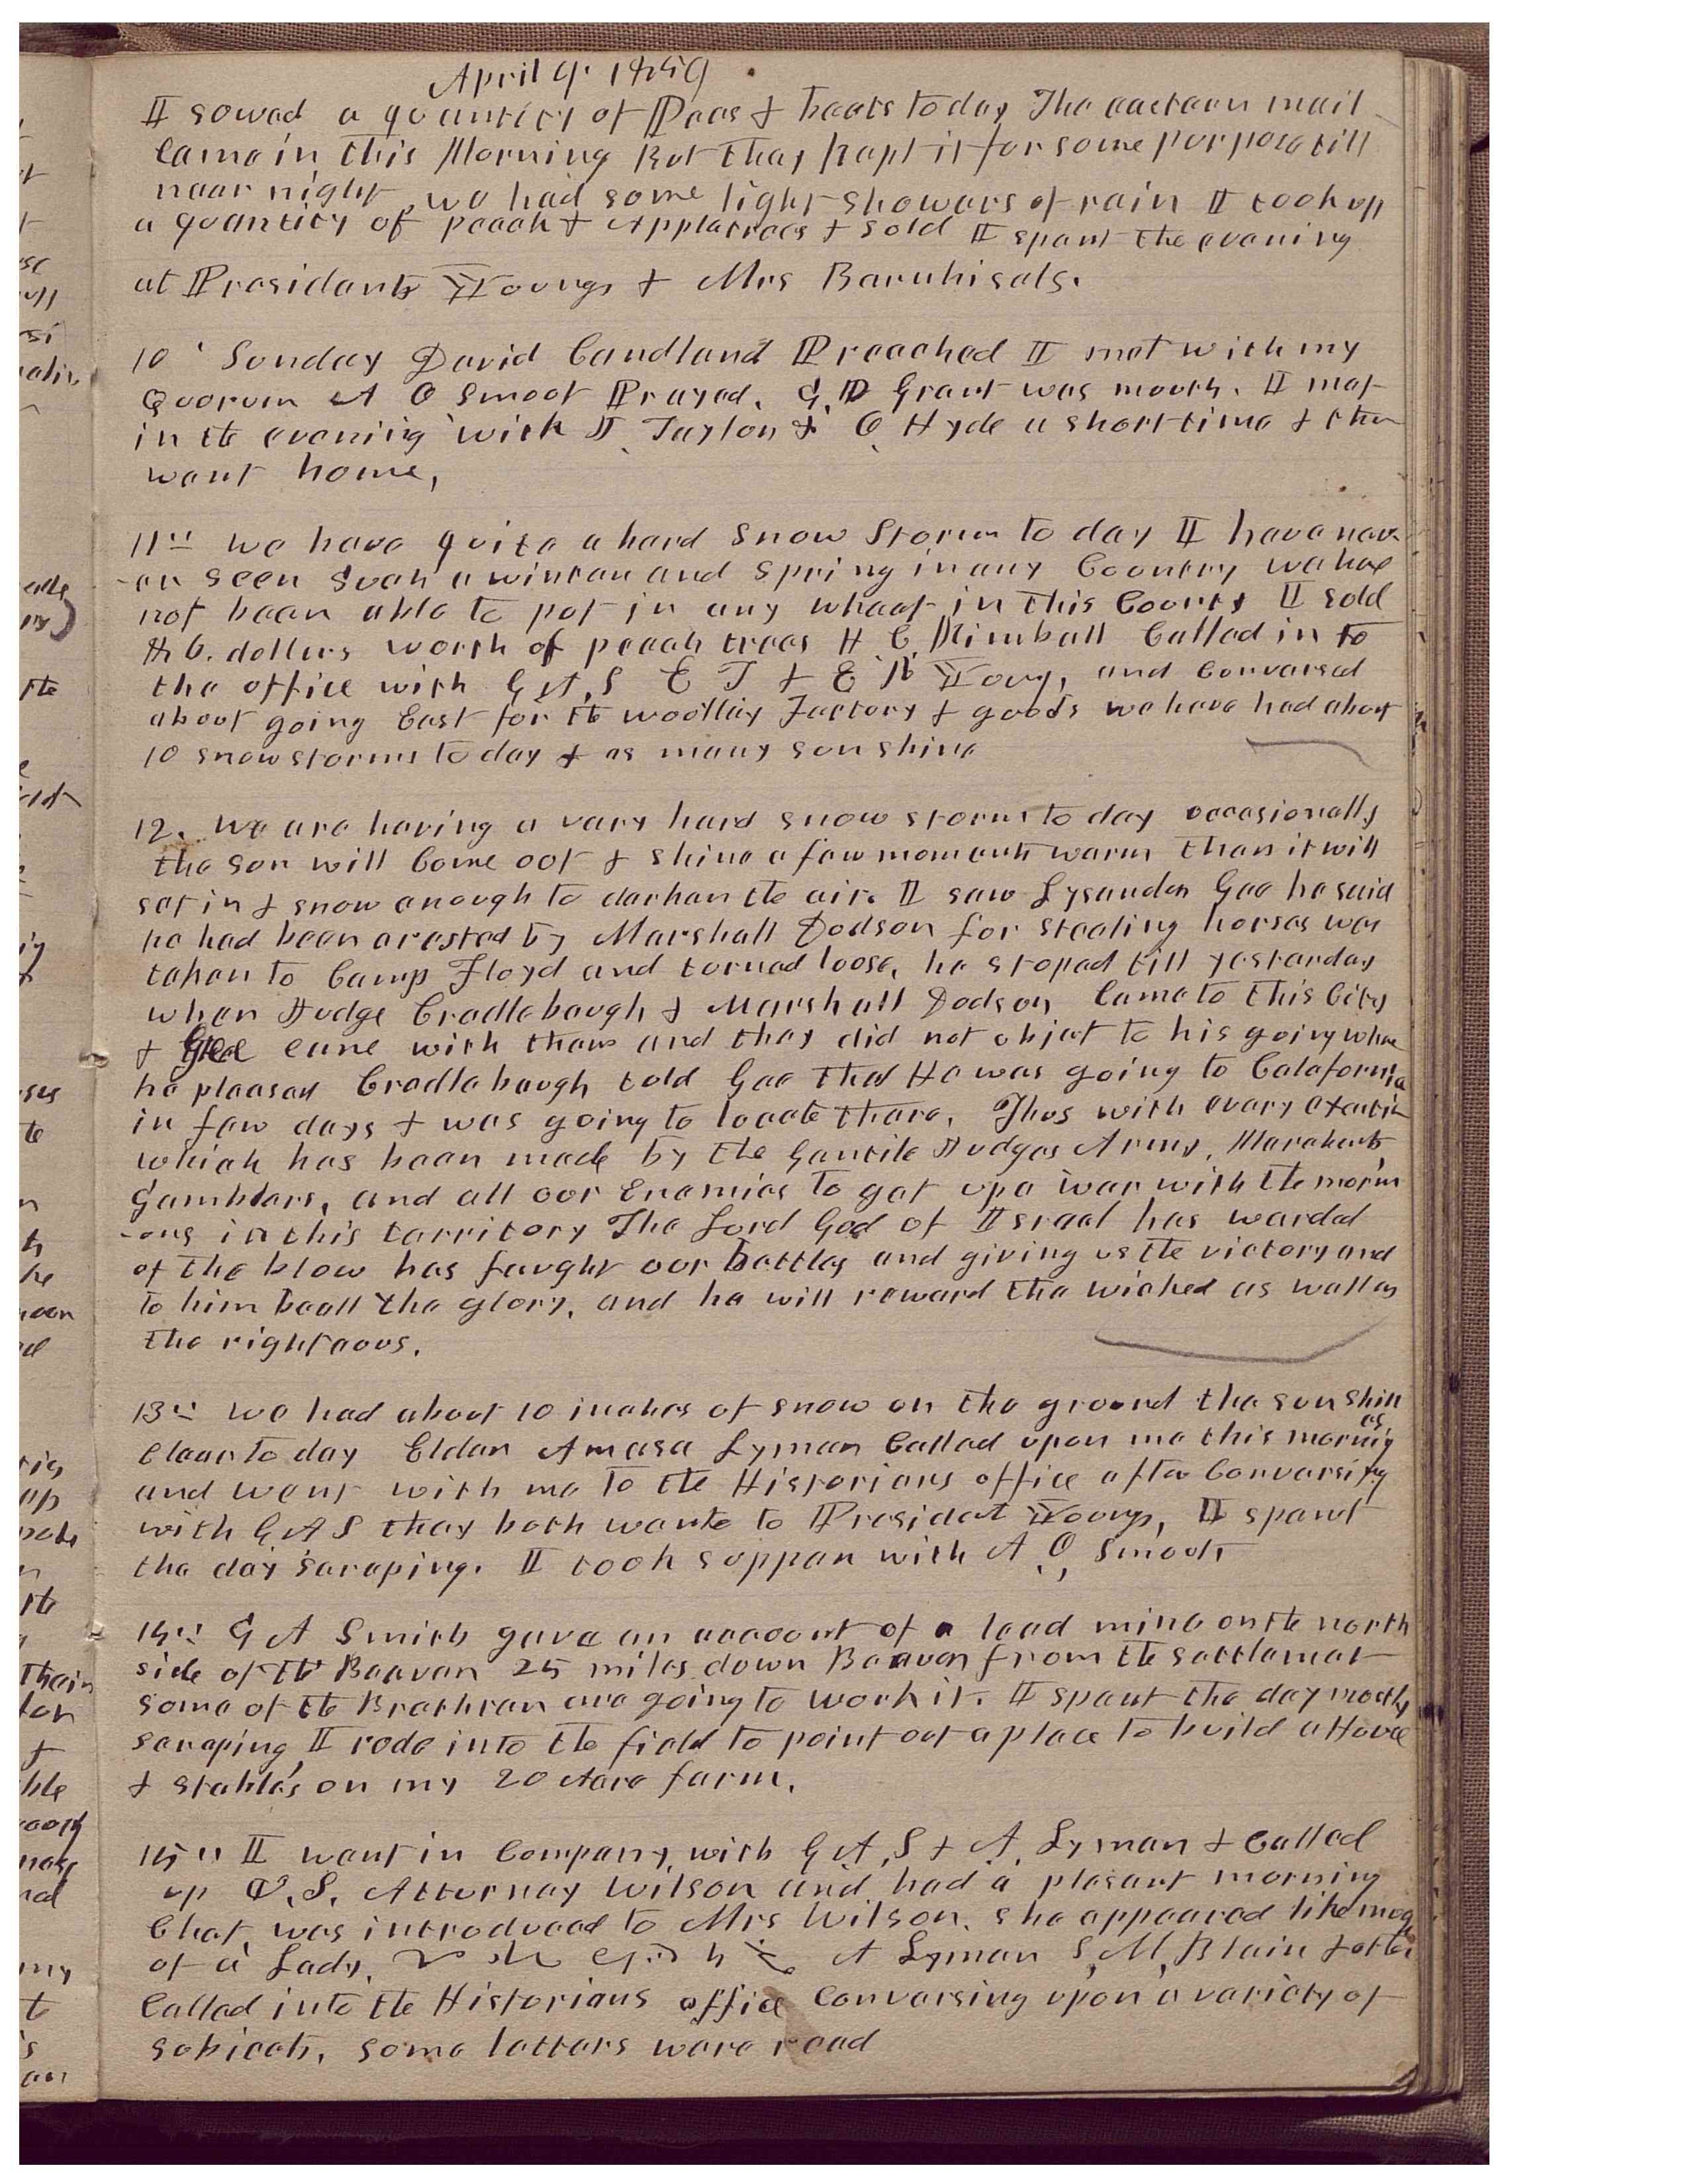 April 9. 1859
I sowed a quantity of Peas & beets to day The eastern mail
came in this Morning But they kept it for some purpose till
near night, we had some light showers of rain I took up
a quantity of peach & Apple trees & sold I spent the evening
at Presidents Youngs & Mrs Barnhisals.
10 Sunday David Candland Preached I met with my
Quorum A O Smoot Prayed. G. D Grant was mouth. I met
in the evening with J. Taylor & O. Hyde a short time & then
went home,
11th we have quite a hard snow Storm to day I have nev
-er seen such a winter and spring in any Country we have
not been able to put in any wheat in this County I sold
$6. dollers worth of peach trees H C. Kimball Called in to
the office with G A, S E T & E R Young, and Conversed
about going East for the woolley Factory & goods we have had about
10 snow storms to day & as many sun shine
12. We are having a very hard snow storm to day occasionally
the sun will Come out & shine a few moments warm then it will
set in & snow enough to darken the air. I saw Lysander Gee he said
he had been arested by Marshall Dodson for stealing horses was
taken to Camp Floyd and turned loose, he stoped till yesterday
when Judge Cradlebaugh & Marshall Dodson Came to this City
& Gee came with them and they did not objet to his going where
he pleased Cradlebaugh told Gee that He was going to Calafornia
in few days & was going to locate there. Thus with every exertion
which has been made by the Gentile Judges Army, Marchents
Gamblers, and all our Enemies to get up a war with the morm
-ons in this territory The Lord God of Israel has warded
of the blow has faught our battles and giving us the victory and
to him be all the glory, and he will reward the wicked as well as
the righteous.
13th We had about 10 inches of snow on the ground the sun shin
es
clear to day Elder Amasa Lyman Called upon me this morning
and went with me to the Historians office after Conversing
with G A S they both wente to Presidet Youngs, I spent
the day scraping. I took supper with A O, Smoot
14th G A Smith gave an account of a lead mine on the north
side of the Beaver 25 miles down Beaver from the settlemet
some of the Brethren are going to work it. I spent the day mostly
scraping I rode into the field to point out a place to build a House
& stables on my 20 Acre farm.
15th I went in Company with G A, S & A, Lyman & Called
up U. S. Atternay Wilson and had a plesant morning
Chat, was introduced to Mrs Wilson. she appeared like mog
of a Lady. A Lyman S, M, Blair & other
Called into the Historians office Conversing upon a variety of
subjects, some letters were read